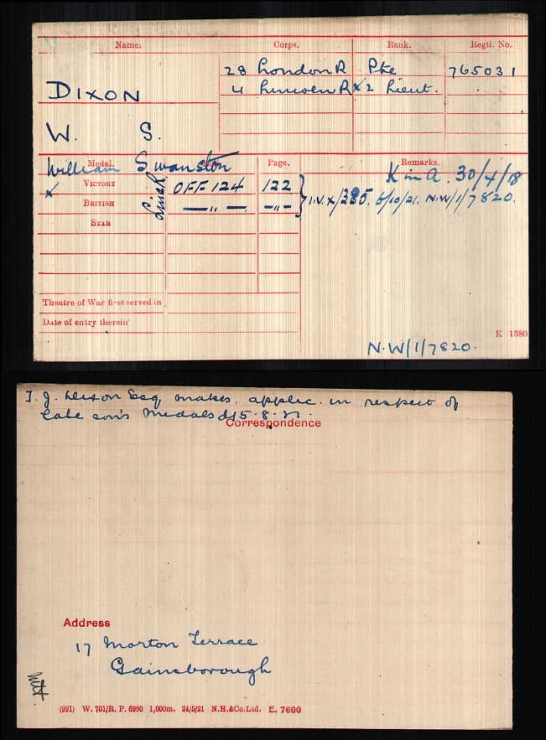 Name. Corps. Rank. Regtl. No.
28 London R Pte 765031
DIXON 4 Lincoln R x 2 Lieut.
W. S.
William Swanston
Medal. Page. Remarks.
K in A. 30/4/18
x VICTORY Linc R OFF 124 122
BRITISH —„— -„- } I.V.X/285. 5/10/21. N.W/1/7820.
STAR
Theatre of War first served in
Date of entry therein
K 1380
N.W/1/7820.
T. J. Dixon Esq makes applic. in respect of
late son's Medals d/15.8.21.
Correspondence
Address
17 Morton Terrace
Gainsborough
(991) W. 701/R.P. 6980 1,000m. 24/5/21 N.H.&Co.Ltd. E. 7600